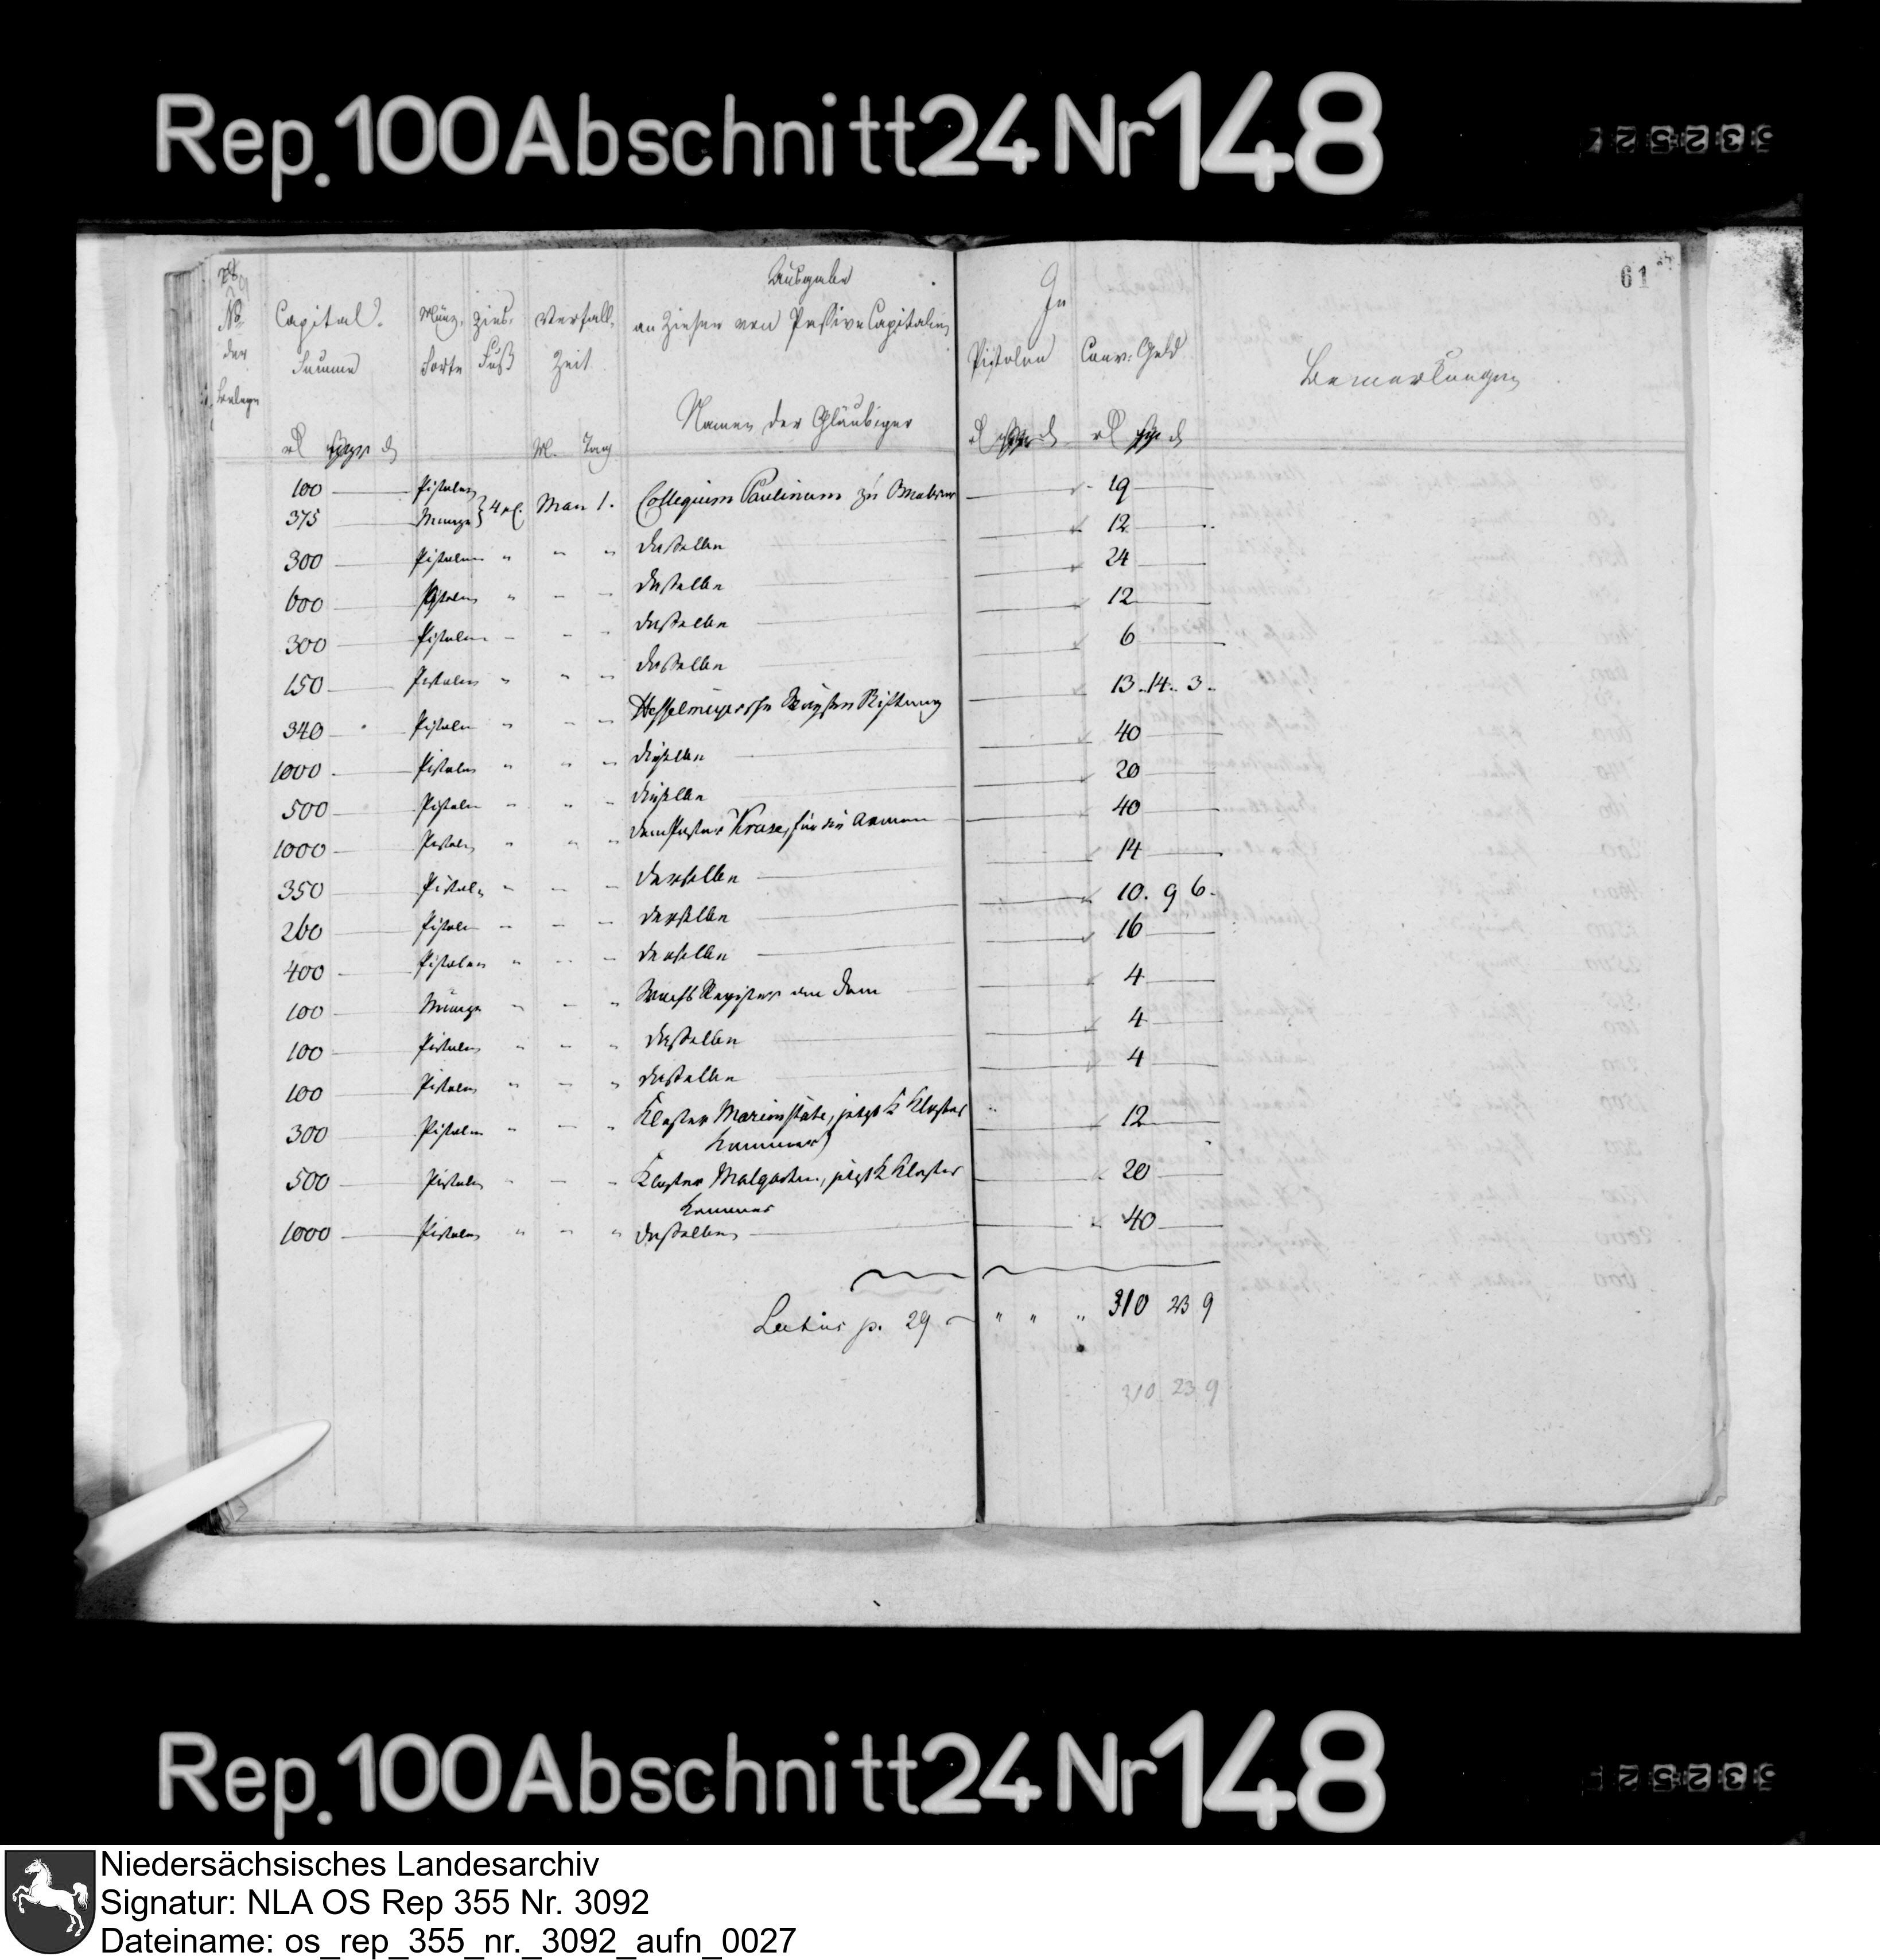 Rep. 100 Abschnitt 24 Nr 148
53252
61
Ausgabe
an Zinsen von Passive Capitalien
In
No
der
Belege
Capital
Summe
Münz-
Sorte
Zins-
Fuß
Verfall-
Zeit
Pistolen
Conv: Geld
Bemerkungen
Namen der Gläubiger
M. Tag
100 Pistolen
375 Münze 4 pC. May 1. Collegium Paulinum zu Osnabrück 19
300 Pistolen " " " dasselbe 12
600 Pistolen " " " dasselbe 24
300 Pistolen " " " dasselbe 12
150 Pistolen " " " dasselbe 6
340 Pistolen " " " Stiftung 13. 14. 3.
1000 Pistolen " " " dieselbe 40
500 Pistolen " " " dieselbe 20
1000 Pistolen " " " dem Pastor Kruse, für die Armen 40
350 Pistolen " " " derselbe 14
260 Pistolen " " " derselbe 10. 9 6.
400 Pistolen " " " derselbe 16
100 Münze " " " Wachs Register am Dom 4
100 Pistolen " " " dasselbe 4
100 Pistolen " " " dasselbe 4
300 Pistolen " " " Kloster Marienstäte, jetzt K Kloster
Kammer 12
500 Pistolen " " " Kloster Malgarten, jetzt K Kloster
Kammer 20
1000 Pistolen " " " dasselbe 40
Latus p. 29 " " " 310 23 9
310 23 9
Rep. 100 Abschnitt 24 Nr 148
53252
Niedersächsisches Landesarchiv
Signatur: NLA OS Rep 355 Nr. 3092
Dateiname: os_rep_355_nr._3092_aufn_0027